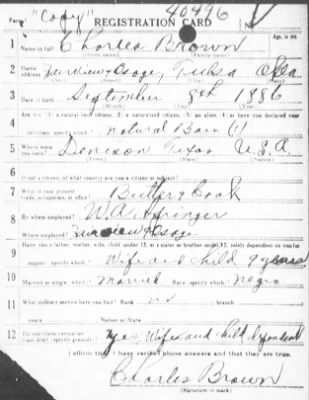 Form "Copy" 40496
REGISTRATION CARD
1 Name in full Charles Brown Age, in yrs.
(Given name) (Family name)
2 Home address Fairview & Osage, Tulsa Okla
3 Date of birth September 8th 1886
(Month) (Day) (Year)
4 Are you (1) a natural-born citizen, (2) a naturalized citizen, (3) an alien, (4) or have you declared your
intention (specify which)? Natural Born (1)
5 Where were you born? Denison Texas U.S.A
(Town) (State) (Nation)
6 If not a citizen, of what country are you a citizen or subject?
7 What is your present trade, occupation, or office? Butler & Cook
8 By whom employed? W.A.
Where employed? Fairview & Osage
9 Have you a father, mother, wife, child under 12, or a sister or brother under 12, solely dependent on you for
support (specify which)? Wife and child 9 years
10 Married or single (which)? Married Race (specify which)? Negro
11 What military service have you had? Rank no branch
years Nation or State
12 Do you claim exemption from draft (specify grounds)? yes, Wife and child dependent
I affirm that I have verified above answers and that they are true.
Charles Brown
(Signature or mark)